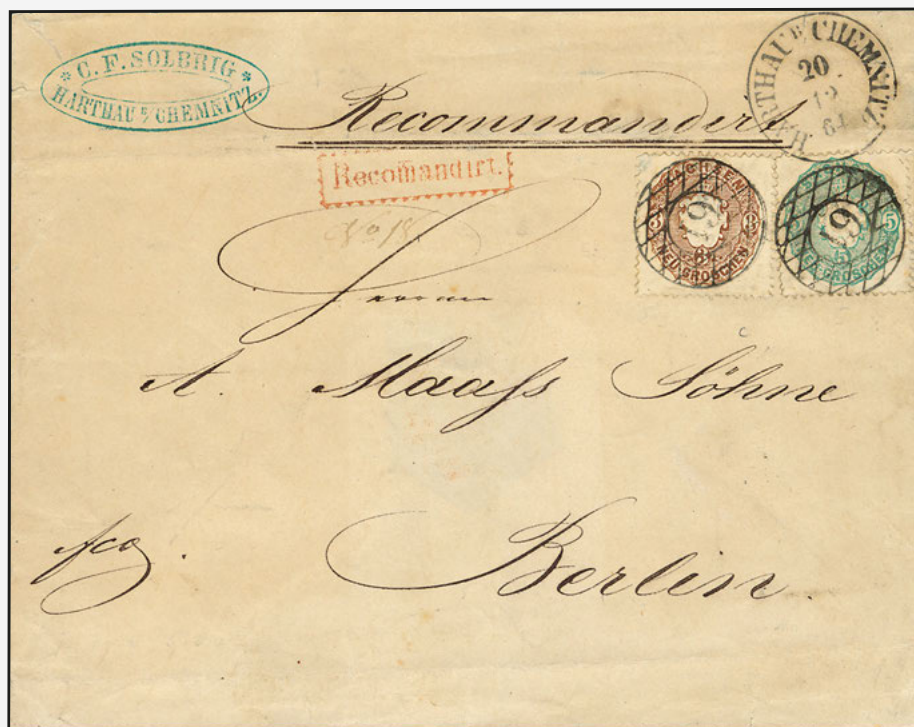 * C. F. SOLBRIG *
HARTHAU B/ CHEMNITZ.
HARTHAU B/ CHEMNITZ
20
12
64
Recommandirt
Recomandirt.
No 18
SACHSEN
3 3
NEUGROSCHEN
61
5
5
NEUGROSCHEN
61
Herrn
A. Maass Söhne
fco.
Berlin.